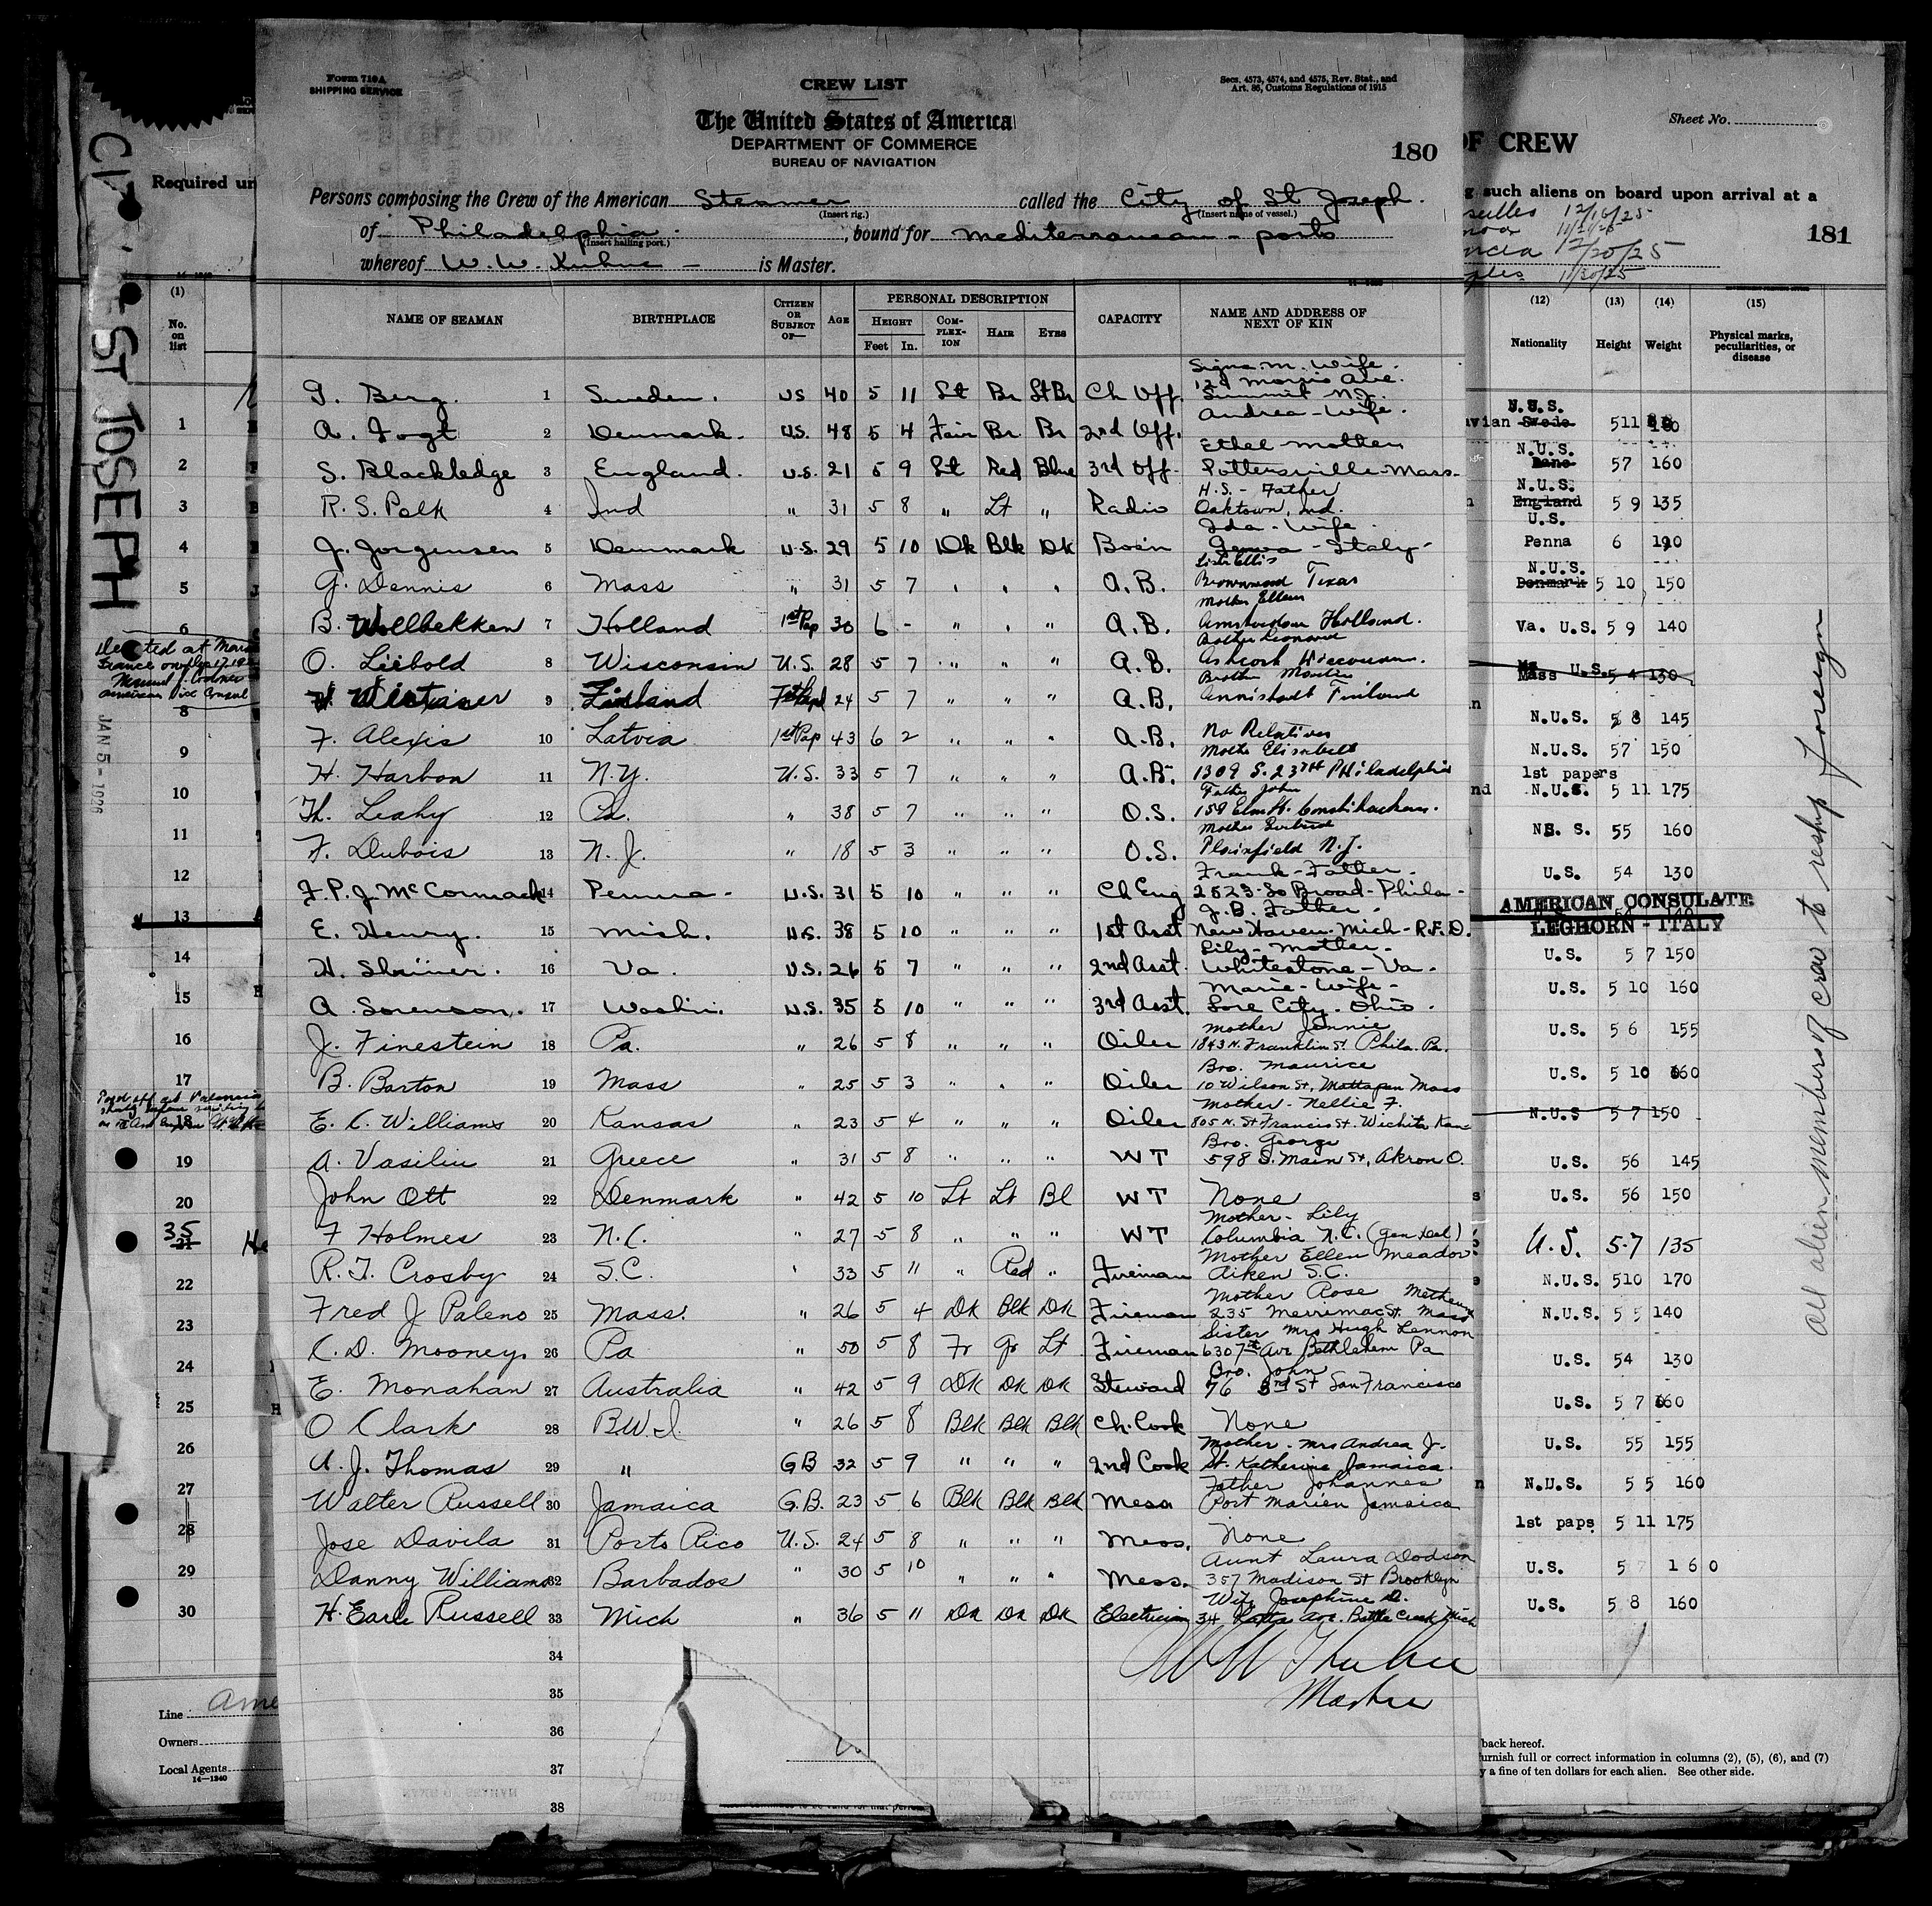 Form 710A
SHIPPING SERVICE
CREW LIST
Secs. 4573, 4574, and 4575, Rev. Stat., and
Art. 86, Customs Regulations of 1915
The United States of America
DEPARTMENT OF COMMERCE
BUREAU OF NAVIGATION
180
Persons composing the Crew of the American Steamer called the City of St Joseph.
(Insert rig.) (Insert name of vessel.)
of Philadelphia. , bound for Mediterranean - ports
(Insert hailing port.)
whereof W. W. is Master.
NAME OF SEAMAN BIRTHPLACE CITIZEN OR SUBJECT OF— AGE PERSONAL DESCRIPTION CAPACITY NAME AND ADDRESS OF NEXT OF KIN
HEIGHT COMPLEXION HAIR EYES
Feet In.
Signe. M. Wife.
129 Morris Ave.
Berg. 1 Sweden. US 40 5 11 Lt Br Lt Br Ch Off. Summit N.J.
Andrea - Wife.
A. Fogt 2 Denmark. U.S. 48 5 4 Fair Br. Br 2nd Off.
Ethel mother
S. Blackledge 3 England. U.S. 21 5 9 Lt Red Blue 3rd Off. Pottersville Mass-
H.S. - Father
R. S. Polk 4 Ind " 31 5 8 " Lt " Radio Oaktown, Ind.
Ida - Wife.
J. Jorgensen 5 Denmark U.S. 29 5 10 Dk Blk Dk Bos'n Genoa - Italy-
G. Dennis 6 Mass " 31 5 7 " " " A.B. Brownwood Texas
Mother Ellen
B. Wollbekken 7 Holland 1st Pap 30 6 - " " " A.B. Amsterdam Holland.
Brother Leonard
O. Liebold 8 Wisconsin U.S. 28 5 7 " " " A.B. Wisconsin.
Brother
9 Finland 24 5 7 " " " A.B. Finland
F. Alexis 10 Latvia 1st Pap 43 6 2 " " " A.B. No Relatives
Mother Elizabeth
H. Harbon 11 N.Y. U.S. 33 5 7 " " " A.B. 1309 S. 23rd Philadelphia
Father John
Th. Leahy 12 Pa. " 38 5 7 " " " O.S. 159 Elm St.
Mother Gertrude
F. Dubois 13 N.J. " 18 5 3 " " " O.S. Plainfield N.J.
Frank - Father.
F. P. J. McCormack 14 Penna - U.S. 31 5 10 " " " Ch Eng 2523 So Broad - Phila -
J. B. Father.
E. Henry. 15 Mich. U.S. 38 5 10 " " " 1st Asst New Haven Mich - R.F.D.
Lily - Mother -
H. 16 Va. U.S. 26 5 7 " " " 2nd Asst. Whitestone - Va.
Marie - Wife -
A. Sorenson. 17 Washin. U.S. 35 5 10 " " " 3rd Asst. Lore City. Ohio.
Mother Jennie
J. Finestein 18 Pa. " 26 5 8 " " " Oiler 1843 N. Franklin St Phila. Pa.
Bro. Maurice
B. Barton 19 Mass " 25 5 3 " " " Oiler 10 Wilson St, Mattapan Mass
Mother - Nellie F.
E. C. Williams 20 Kansas " 23 5 4 " " " Oiler 805 N. St Francis St. Wichita Kan
Bro. George
A. Vasiliu 21 Greece " 31 5 8 " " " WT 598 S. Main St, Akron O.
John Ott 22 Denmark " 42 5 10 Lt Lt Bl WT None
Mother - Lily
F Holmes 23 N.C. " 27 5 8 " " " WT Columbia N.C. (Gen Del)
Mother Ellen Meador
R. T. Crosby 24 S.C. " 33 5 11 " Red " Fireman Aiken S.C.
Mother Rose Methuen
Fred J Paleno 25 Mass. " 26 5 4 Dk Blk Dk Fireman 235 Merrimac St. Mass
Sister Mrs Hugh Lennon
C. D. Mooney. 26 Pa " 50 5 8 Fr Gr Lt Fireman 630 7th Ave Bethlehem Pa
Bro. John
E. Monahan 27 Australia " 42 5 9 Dk Dk Dk Steward 76 3rd St San Francisco
O Clark 28 B.W.I. " 26 5 8 Blk Blk Blk Ch. Cook None
Mother - Mrs Andrea J.
A. J. Thomas 29 " GB 32 5 9 " " " 2nd Cook St. Katherine Jamaica.
Father Johannes
Walter Russell 30 Jamaica G.B. 23 5 6 Blk Blk Blk Mess Port Marien Jamaica
Jose Davila 31 Porto Rico U.S. 24 5 8 " " " Mess. None
Aunt Laura Dodson
Danny Williams 32 Barbados " 30 5 10 " " " Mess. 357 Madison St Brooklyn
Wife Josephine D.
H. Earle Russell 33 Mich " 36 5 11 Dk Dk Dk Electrician 34 Ave. Battle Creek Mich
34
35
36
37
38
Master
ST JOSEPH
JAN 5 - 1926
Required un
(1)
No. on list
1
2
3
4
5
6
8
9
10
11
12
13
14
15
16
17
18
19
20
35
21
22
23
24
25
26
27
28
29
30
Line Ame
Owners
Local Agents
14—1240
Sheet No.
OF CREW
g such aliens on board upon arrival at a
seilles 12/16/25
noa
ncia 12/20/25
ples 11/30/25
181
(12) (13) (14) (15)
Nationality Height Weight Physical marks, peculiarities, or disease
N.U.S.
vian Swede 5 11
N.U.S.
Dane 57 160
N.U.S.
England 5 9 135
U.S.
Penna 6 190
N.U.S.
Denmark 5 10 150
Va. U.S. 5 9 140
Mass U.S. 5 4 130
N.U.S. 5 8 145
N.U.S. 57 150
1st papers
N.U.S. 5 11 175
55 160
U.S. 54 130
AMERICAN CONSULATE
LEGHORN - ITALY
U.S. 5 7 150
U.S. 5 10 160
U.S. 5 6 155
U.S. 5 10 160
N.U.S 5 7 150
U.S. 56 145
U.S. 56 150
U.S. 5-7 135
N.U.S. 510 170
N.U.S. 5 5 140
U.S. 54 130
U.S. 5 7 160
U.S. 55 155
N.U.S. 5 5 160
1st paps 5 11 175
U.S. 5 7 160
U.S. 5 8 160
All alien members of crew to reship foreign
back hereof.
urnish full or correct information in columns (2), (5), (6), and (7)
y a fine of ten dollars for each alien. See other side.